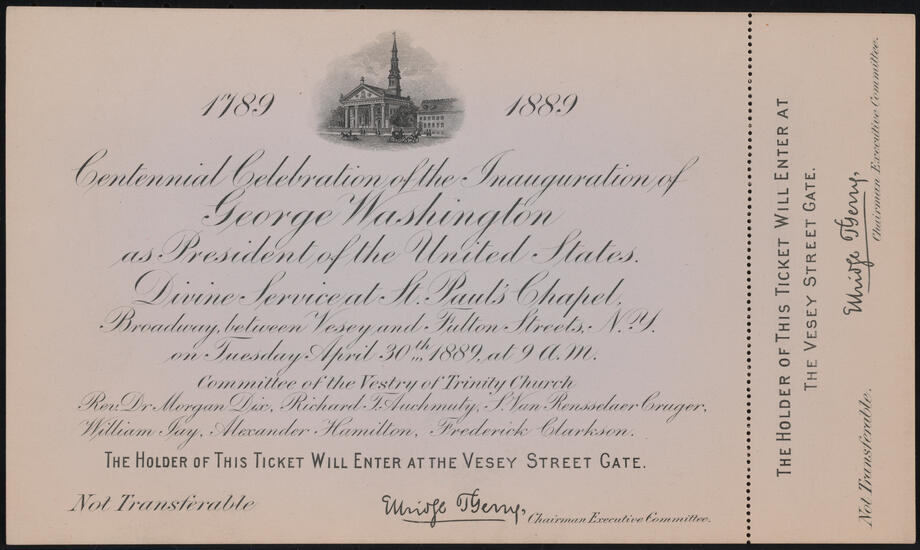 1789 1889
Centennial Celebration of the Inauguration of
George Washington
as President of the United States.
Divine Service at St. Paul's Chapel,
Broadway, between Vesey and Fulton Streets, N.Y.
on Tuesday April 30th, 1889, at 9 A.M.
Committee of the Vestry of Trinity Church
Rev. Dr. Morgan Dix, Richard T. Auchmuty, S. Van Rensselaer Cruger,
William Jay, Alexander Hamilton, Frederick Clarkson.
THE HOLDER OF THIS TICKET WILL ENTER AT THE VESEY STREET GATE.
Not Transferable
Elbridge T Gerry,
Chairman Executive Committee.
THE HOLDER OF THIS TICKET WILL ENTER AT
THE VESEY STREET GATE.
Elbridge T Gerry,
Chairman Executive Committee.
Not Transferable.